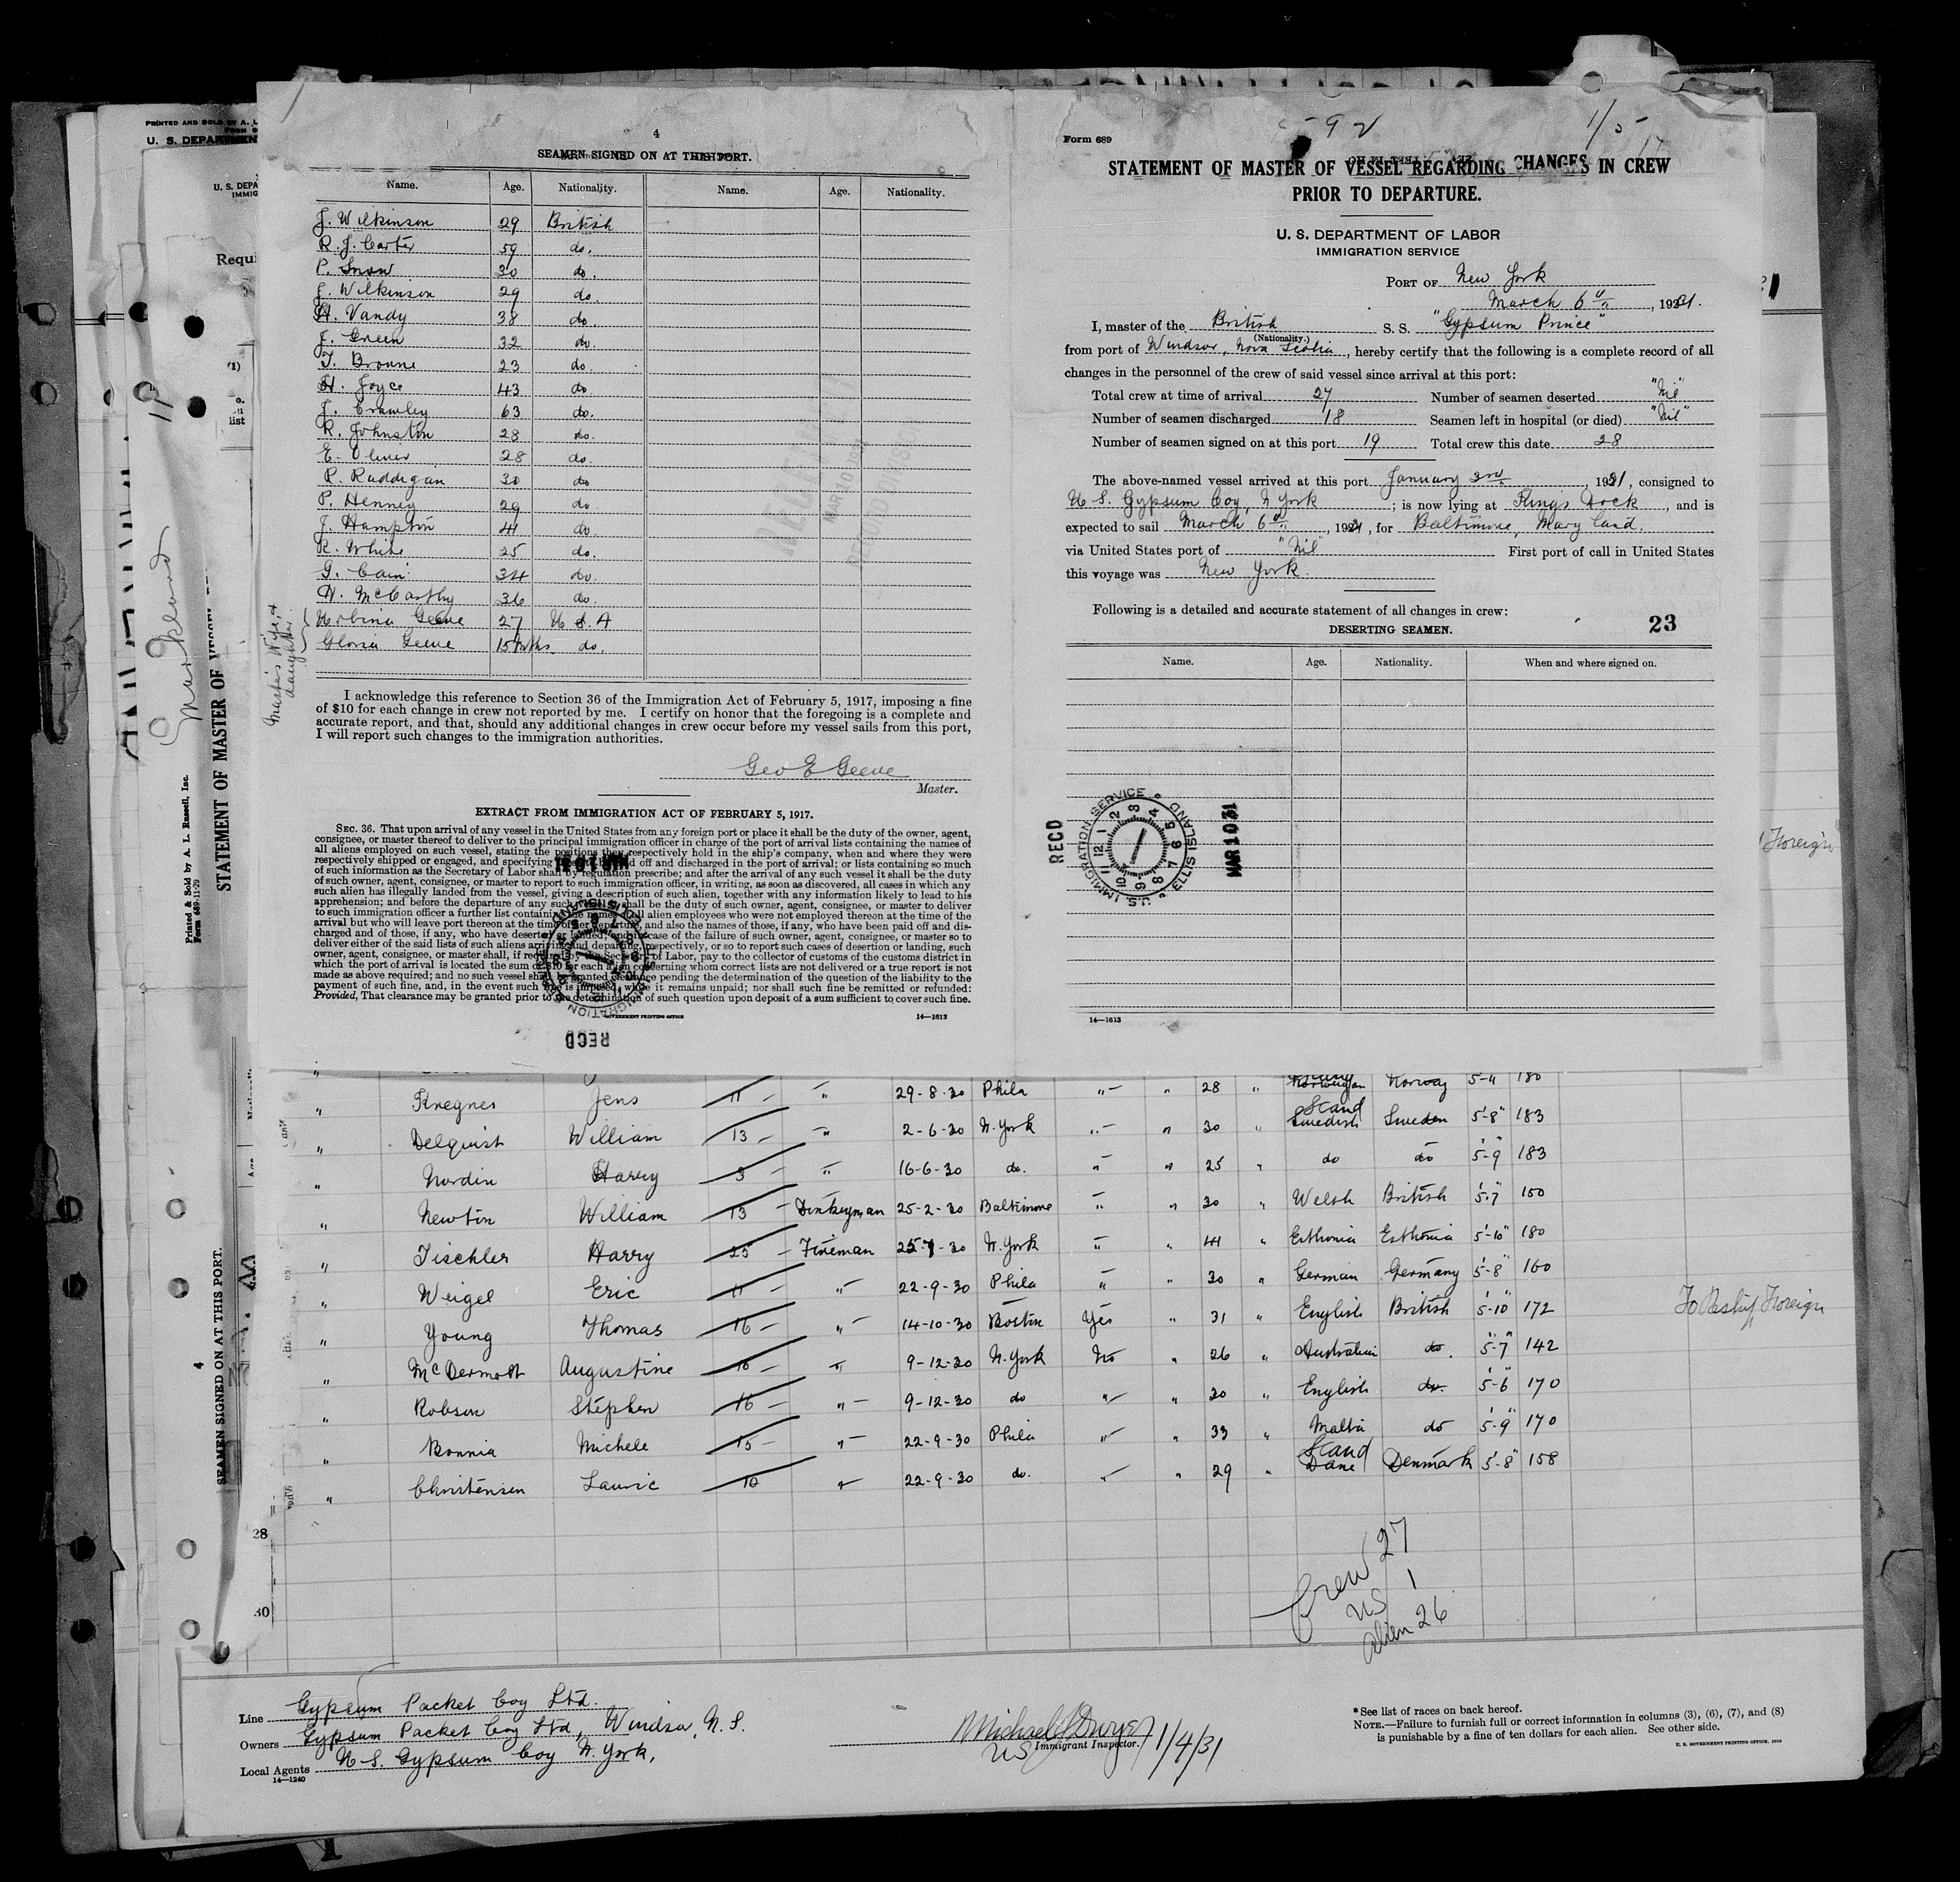 4
SEAMEN SIGNED ON AT THIS PORT.
Name. Age. Nationality. Name. Age. Nationality.
J. Wilkinson 29 British
R. J. Carter 59 do.
P. Snow 30 do.
J. Wilkinson 29 do.
H. Vandy 38 do.
J. Green 32 do.
T. Browne 23 do.
H. Joyce 43 do
J. Crawley 63 do.
R. Johnston 28 do.
E. Oliver 28 do.
P. Ruddigan 30 do
P. Henney 29 do
J. Hampton 41 do.
R. White 25 do.
G. Cain 34 do.
H. McCarthy 36 do.
Urbina Geeve 27 U.S.A
Gloria Geeve 15 mths. do.
Master's Wife &
daughter.
I acknowledge this reference to Section 36 of the Immigration Act of February 5, 1917, imposing a fine
of $10 for each change in crew not reported by me. I certify on honor that the foregoing is a complete and
accurate report, and that, should any additional changes in crew occur before my vessel sails from this port,
I will report such changes to the immigration authorities.
Geo E Geeve
Master.
EXTRACT FROM IMMIGRATION ACT OF FEBRUARY 5, 1917.
SEC. 36. That upon arrival of any vessel in the United States from any foreign port or place it shall be the duty of the owner, agent,
consignee, or master thereof to deliver to the principal immigration officer in charge of the port of arrival lists containing the names of
all aliens employed on such vessel, stating the positions they respectively hold in the ship's company, when and where they were
respectively shipped or engaged, and specifying those to be paid off and discharged in the port of arrival; or lists containing so much
of such information as the Secretary of Labor shall by regulation prescribe; and after the arrival of any such vessel it shall be the duty
of such owner, agent, consignee, or master to report to such immigration officer, in writing, as soon as discovered, all cases in which any
such alien has illegally landed from the vessel, giving a description of such alien, together with any information likely to lead to his
apprehension; and before the departure of any such vessel it shall be the duty of such owner, agent, consignee, or master to deliver
to such immigration officer a further list containing the names of all alien employees who were not employed thereon at the time of the
arrival but who will leave port thereon at the time of her departure, and also the names of those, if any, who have been paid off and dis-
charged and of those, if any, who have deserted or landed; and in case of the failure of such owner, agent, consignee, or master so to
deliver either of the said lists of such aliens arriving and departing, respectively, or so to report such cases of desertion or landing, such
owner, agent, consignee, or master shall, if required by the Secretary of Labor, pay to the collector of customs of the customs district in
which the port of arrival is located the sum of $10 for each alien concerning whom correct lists are not delivered or a true report is not
made as above required; and no such vessel shall be granted clearance pending the determination of the question of the liability to the
payment of such fine, and, in the event such fine is imposed, while it remains unpaid; nor shall such fine be remitted or refunded:
Provided, That clearance may be granted prior to the determination of such question upon deposit of a sum sufficient to cover such fine.
GOVERNMENT PRINTING OFFICE 14—1613
RECD
Form 689
1/5
STATEMENT OF MASTER OF VESSEL REGARDING CHANGES IN CREW
PRIOR TO DEPARTURE.
U. S. DEPARTMENT OF LABOR
IMMIGRATION SERVICE
PORT OF New York
March 6th, 1931.
I, master of the British S. S. "Gypsum Prince"
(Nationality.)
from port of Windsor, Nova Scotia, hereby certify that the following is a complete record of all
changes in the personnel of the crew of said vessel since arrival at this port:
Total crew at time of arrival 27 Number of seamen deserted "Nil"
Number of seamen discharged 18 Seamen left in hospital (or died) "Nil"
Number of seamen signed on at this port 19 Total crew this date 28
The above-named vessel arrived at this port January 3rd, 1931, consigned to
U S. Gypsum Coy, N York; is now lying at Kings Dock, and is
expected to sail March 6th, 1931, for Baltimore, Maryland.
via United States port of "Nil" First port of call in United States
this voyage was New York.
Following is a detailed and accurate statement of all changes in crew:
DESERTING SEAMEN. 23
Name. Age. Nationality. When and where signed on.
RECD
U.S. IMMIGRATION SERVICE ELLIS ISLAND
MAR 10 31
14—1613
" Kregnes Jens 11 – " 29-8-30 Phila " " 28 " Norwegian Norway 5-11 180
" Delquist William 13 – " 2-6-30 N. York " " 30 " Scand Swedish Sweden 5-8" 183
" Nordin Harry 5 – " 16-6-30 do. " " 25 " do do 5-9 183
" Newton William 13 – Donkeyman 25-2-30 Baltimore " " 30 " Welsh British 5-7 150
" Tischler Harry 25 – Fireman 25-7-30 N. York " " 41 " Esthonia Esthonia 5-10" 180
" Weigel Eric 11 – " 22-9-30 Phila " " 30 " German Germany 5-8" 160
" Young Thomas 16 – " 14-10-30 Boston Yes " 31 " English British 5-10" 172 To Reship Foreign
" McDermott Augustine 10 – " 9-12-30 N. York No " 26 " Australian do. 5-7" 142
" Robson Stephen 16 – " 9-12-30 do " " 30 " English do. 5-6" 170
" Bonnia Michele 15 – " 22-9-30 Phila " " 33 " Malta do 5-9" 170
" Christensen Lauric 10 " 22-9-30 do. " " 29 " Scand Dane Denmark 5-8" 158
28
30
Crew 27
US 1
Alien 26
Line Gypsum Packet Coy Ltd.
Owners Gypsum Packet Coy Ltd, Windsor, N. S.
Local Agents U S. Gypsum Coy N. York,
14—1240
US Immigrant Inspector. 1/4/31
*See list of races on back hereof.
NOTE.—Failure to furnish full or correct information in columns (3), (6), (7), and (8)
is punishable by a fine of ten dollars for each alien. See other side.
U. S. GOVERNMENT PRINTING OFFICE
Foreign
PRINTED AND SOLD BY A. L
U. S. DEPARTMENT
U. S. DEPA
IMMIG
Requi
(1)
list
STATEMENT OF MASTER OF VESSEL
Printed & Sold by A. L. Russell, Inc.
Form 689-11-29
4
SEAMEN SIGNED ON AT THIS PORT.